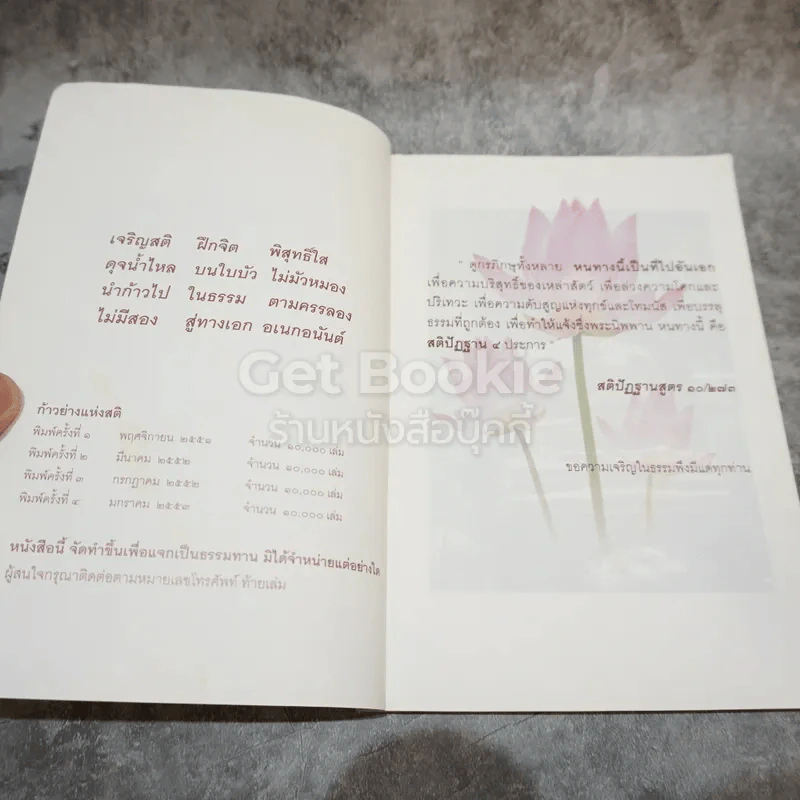 เจริญสติ ฝึกจิต พิสุทธิ์ใส
ดุจน้ำไหล บนใบบัว ไม่มัวหมอง
นำก้าวไป ในธรรม ตามครรลอง
ไม่มีสอง สู่ทางเอก อเนกอนันต์
ก้าวย่างแห่งสติ
พิมพ์ครั้งที่ ๑ พฤศจิกายน ๒๕๕๑ จำนวน ๑๐,๐๐๐ เล่ม
พิมพ์ครั้งที่ ๒ มีนาคม ๒๕๕๒ จำนวน ๑๐,๐๐๐ เล่ม
พิมพ์ครั้งที่ ๓ กรกฎาคม ๒๕๕๒ จำนวน ๑๐,๐๐๐ เล่ม
พิมพ์ครั้งที่ ๔ มกราคม ๒๕๕๓ จำนวน ๑๐,๐๐๐ เล่ม
หนังสือนี้ จัดทำขึ้นเพื่อแจกเป็นธรรมทาน มิได้จำหน่ายแต่อย่างใด
ผู้สนใจกรุณาติดต่อตามหมายเลขโทรศัพท์ ท้ายเล่ม
" ดูกรภิกษุทั้งหลาย หนทางนี้เป็นที่ไปอันเอก
เพื่อความบริสุทธิ์ของเหล่าสัตว์ เพื่อล่วงความโศกและ
ปริเทวะ เพื่อความดับสูญแห่งทุกข์และโทมนัส เพื่อบรรลุ
ธรรมที่ถูกต้อง เพื่อทำให้แจ้งซึ่งพระนิพพาน หนทางนี้ คือ
สติปัฏฐาน ๔ ประการ "
สติปัฏฐานสูตร ๑๐/๒๗๓
ขอความเจริญในธรรมพึงมีแด่ทุกท่าน
Get Bookie
ร้านหนังสือบุ๊คกี้